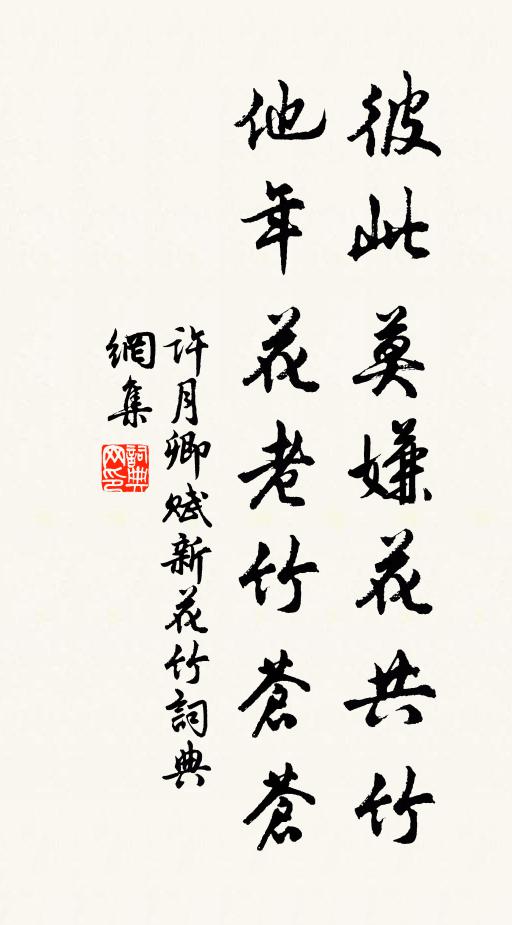 彼此莫嫌花共竹
他年花老竹蒼蒼
許月卿賦新花竹詞典
網集
詞典
网印